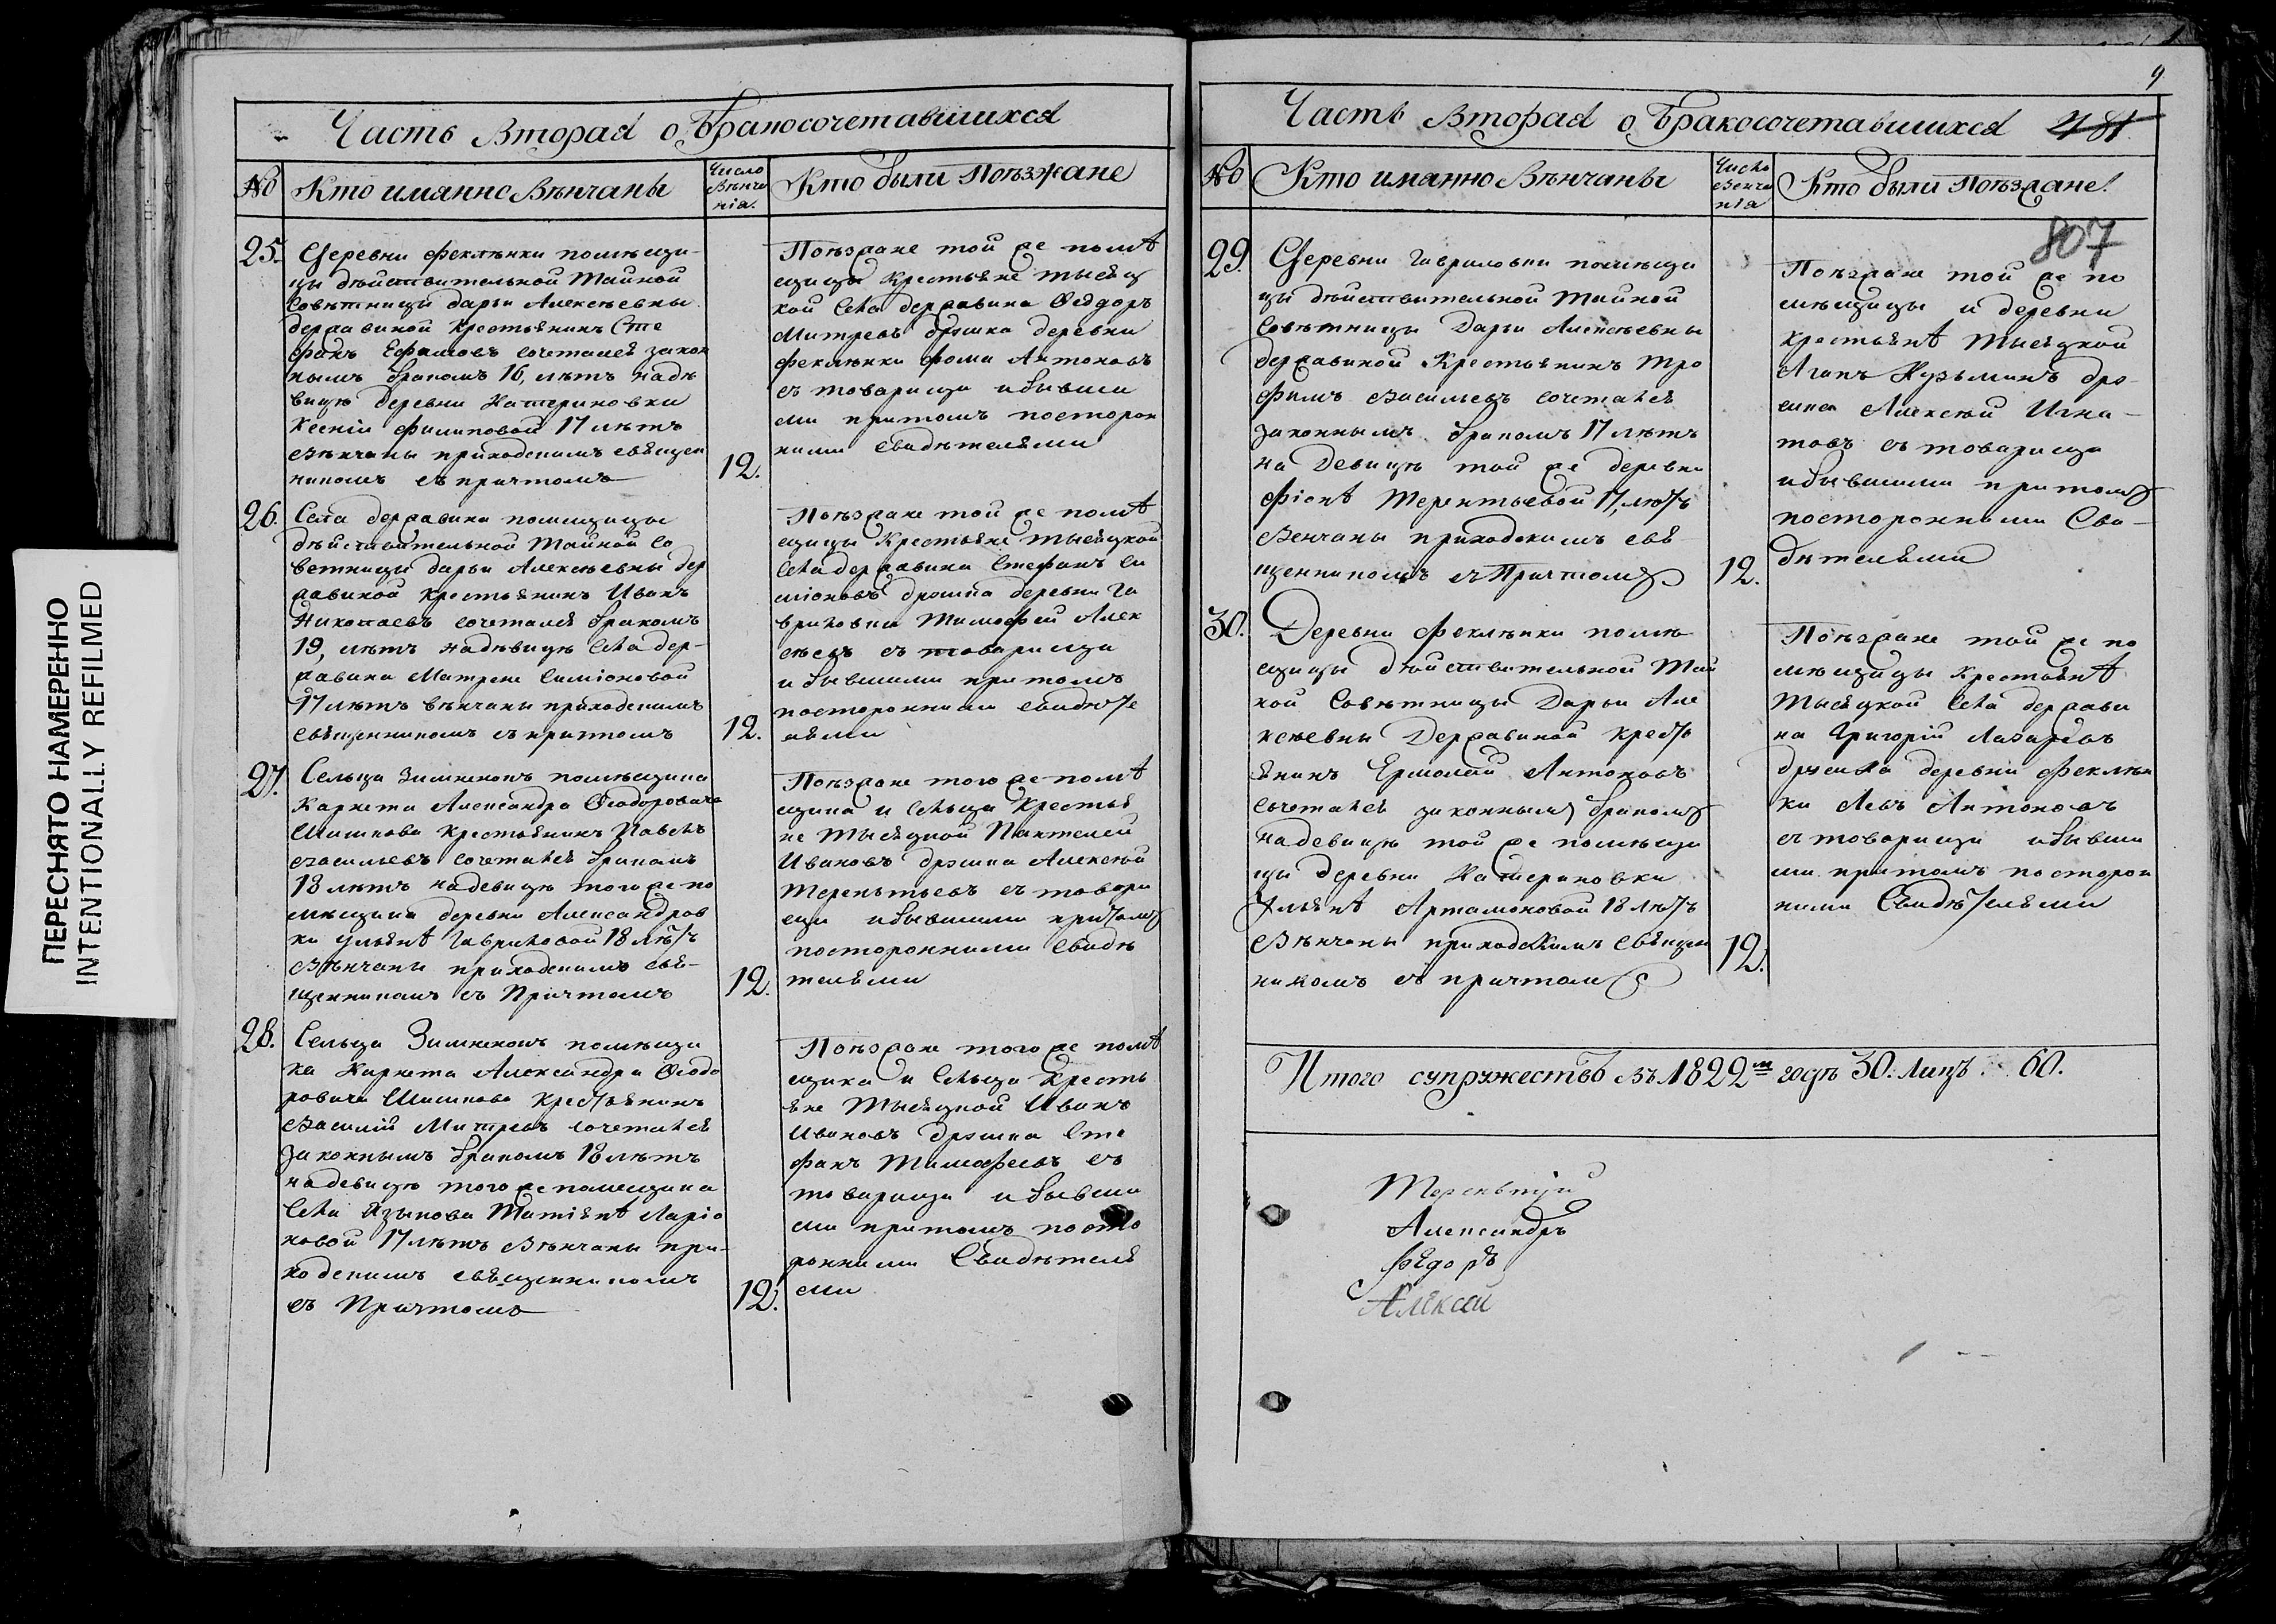 ПЕРЕСНЯТО НАМЕРЕННО
INTENTIONALLY REFILMED
Часть Вторая о бракосочетавшихся
No
Кто имянно Вѣнчаны
Число
Вѣнча
нія.
Кто были Поѣзжане
25.
Деревни феклѣнки помѣщи-
цы дѣйствительной Тайной
Совѣтницы дарьи Алексѣевны
державиной крестьянинъ Сте
фанъ Ефимовъ сочтался закон
нымъ бракомъ 16, лѣтъ надѣ
вицѣ деревни Катериновки
Ксеніи филиповой 17 лѣтъ
Вѣнчаны приходскимъ священ
никомъ съ причтомъ
12.
Поѣзжане той же помѣ
щицы Крестьяне тысяц
кой Села державина Ѳедоръ
Митревъ дружка деревни
феклѣнки фома Антоновъ
съ товарищи и бывши
ми притомъ посторон
ними свидѣтелями
26.
Села державина помещицы
дѣйствительной Тайной Со
ветницы дарьи Алексѣевны дер
жавиной крестьянинъ Иванъ
Николаевъ сочетался бракомъ
19, лѣтъ надѣвицѣ Села дер-
жавина Матрене Симіоновой
17 лѣтъ вѣнчаны приходскимъ
священникомъ съ притомъ
12.
Поѣзжане той же помѣ
щицы Крестьяне тысяцкой
Села державина Стефанъ Си
міоновъ дрошка деревни Га
вриловки Тимофей Алек
сѣевъ съ товарищи
и бывшими притомъ
посторонними свидѣте
лями
27.
Сельца Зимненокъ помѣщика
Карнета Александра Ѳеодоровича
Шишкова крестьянинъ Павелъ
васильевъ сочетался бракомъ
18 лѣтъ надевицѣ того же по
мѣщика деревни Александров
ки ульянѣ Гавриловой 18 лѣтъ
Вѣнчаны приходскимъ свя-
щенникомъ съ Причтомъ
12.
Поѣзжане того же помѣ
щика и Сельца Крестья
не Тысяцкой Пантелей
Ивановъ дрошка Алексѣй
Терентьевъ съ товари
щи и бывшими притомъ
посторонними Свидѣ
телями
28.
Сельца Зимненокъ помѣщи
ка Карнета Александра Ѳеодо
ровича Шишкова крестьянинъ
Василій Митревъ сочетался
законнымъ бракомъ 18 лѣтъ
надевицѣ того же помещика
Села Языкова Татіянѣ Ларіо
новой 17 лѣтъ Вѣнчаны при-
ходскимъ священникомъ
съ Причтомъ
12.
Поѣзжане того же помѣ
щика и Сельца Кресть
яне Тысяцкой Иванъ
Ивановъ дрошка Сте
фанъ Тимофеевъ съ
товарищи и бывши
ми притомъ посто
ронними Свидѣтеля
ми
9
Часть Вторая о бракосочетавшихся 481
No
Кто имянно Вѣнчаны
Число
Венча
нія
Кто были Поѣзжане
807
29.
Деревни Гавриловки помѣщи
цы дѣйствительной Тайной
Совѣтницы Дарьи Алексѣевны
державиной Крестьянинъ Тро
фимъ Васильевъ сочетался
законнымъ бракомъ 17 лѣтъ
на Девицѣ той же деревни
Фіонѣ Терентьевой 17, лѣтъ
Венчаны приходскимъ свя-
щенникомъ съ Причтомъ
12.
Поѣзжане той же по
мѣщицы и деревни
крестьянѣ Тысяцкой
Агапъ Кузьминъ дро-
шка Алексѣй Игна-
товъ съ товарищи
и бывшими притомъ
посторонними Сви-
дѣтелями
30.
Деревни Феклѣнки помѣ
щицы дѣйствительной Тай
ной Совѣтницы Дарьи Але
ксѣевны Державиной кресть
янинъ Ермолай Антоновъ
Сочетался законнымъ бракомъ
надевицѣ той же помѣщи
цы деревни Катериновки
Ульянѣ Артамоновой 18 лѣтъ
Вѣнчаны приходскимъ Священ
никомъ съ причтомъ
12.
Поѣзжане той же по
мѣщицы Крестьянѣ
Тысяцкой Села держави
на Григорій Лазаревъ
дружка деревни феклѣн
ки Левъ Антоновъ
съ товарищи и бывши
ми притомъ посторон
ними Свидѣтелями
Итого супружествъ въ 1822м годѣ 30. Лицъ 60.
Терентій
Александръ
Федоръ
Алексей